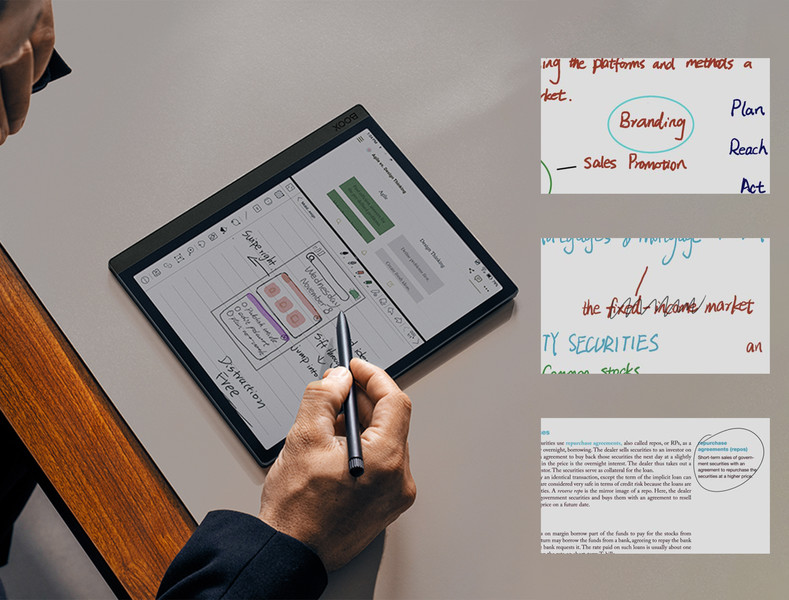 BOOX
Agile vs. Design Thinking
Agile
Design Thinking
Super light
Wednesday
November 8
Jump into
Distraction
Free
ing the platforms and methods a
ket.
Branding
Plan
Sales Promotion
Reach
Act
the fixed-income market
TY SECURITIES
an
Common stocks
urities use repurchase agreements, also called repos, or RPs, as a
overnight, borrowing. The dealer sells securities to an investor on
agreement to buy back those securities the next day at a slightly
in the price is the overnight interest. The dealer thus takes out a
tor. The securities serve as collateral for the loan.
y an identical transaction, except the term of the implicit loan can
are considered very safe in terms of credit risk because the loans are
ties. A reverse repo is the mirror image of a repo. Here, the dealer
government securities and buys them with an agreement to resell
price on a future date.
repurchase
agreements (repos)
Short-term sales of govern-
ment securities with an
agreement to repurchase the
securities at a higher price.
s on margin borrow part of the funds to pay for the stocks from
turn may borrow the funds from a bank, agreeing to repay the bank
bank requests it. The rate paid on such loans is usually about one